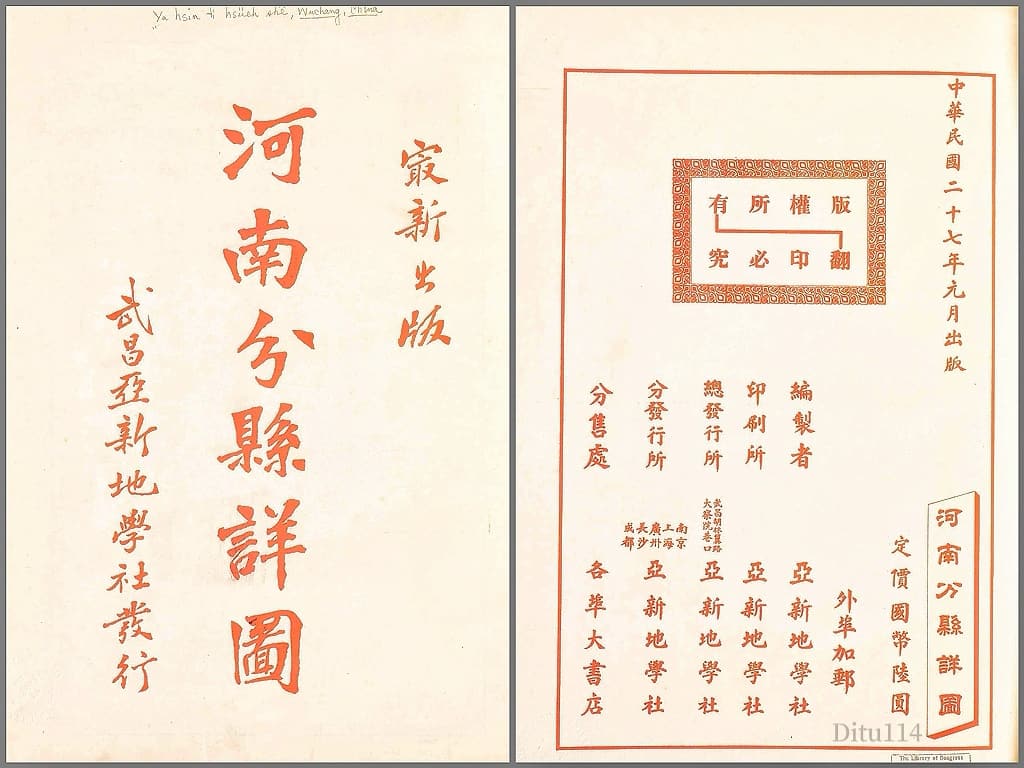 Ya hsin ti hsüeh shê, Wuchang, China
最新出版
河南分縣詳圖
武昌亞新地學社發行
中華民國二十七年元月出版
版權所有
翻印必究
河南分縣詳圖
定價國幣陸圓
外埠加郵
編製者 亞新地學社
印刷所 亞新地學社
總發行所 武昌胡林翼路大察院巷口 亞新地學社
分發行所 南京 上海 廣州 長沙 成都 亞新地學社
分售處 各埠大書店
Ditu114
The Library of Congress